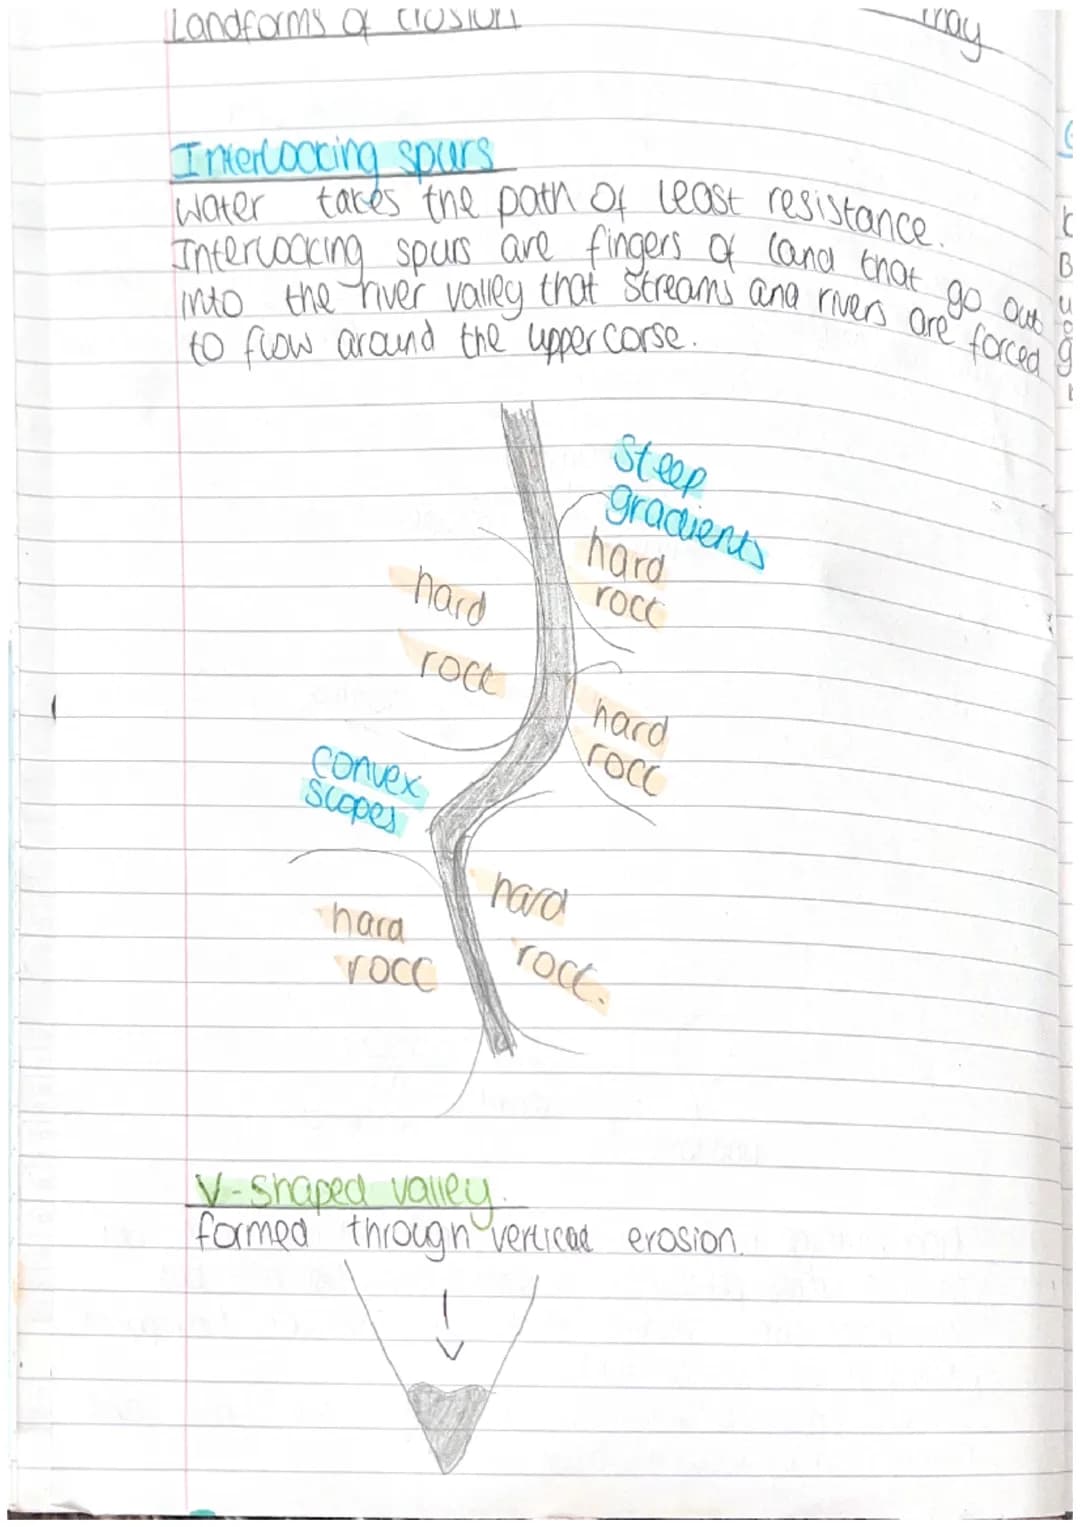 Landforms of erosion
may
Interlocking spurs
water takes the path of least resistance.
Interlocking spurs are fingers of land that go out
into the river valley that streams and rivers are forced
to flow around the upper corse.
Steep
gradients
hard
rock
hard
rock
hard
rock
convex
slopes
hard
rock.
hard
rock
V-shaped valley.
formed through vertical erosion.